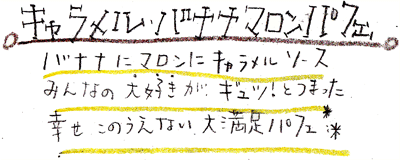 キャラメル・バナナマロンパフェ
バナナにマロンにキャラメルソース
みんなの大好きがギュッ!とつまった
幸せこのうえない大満足パフェ